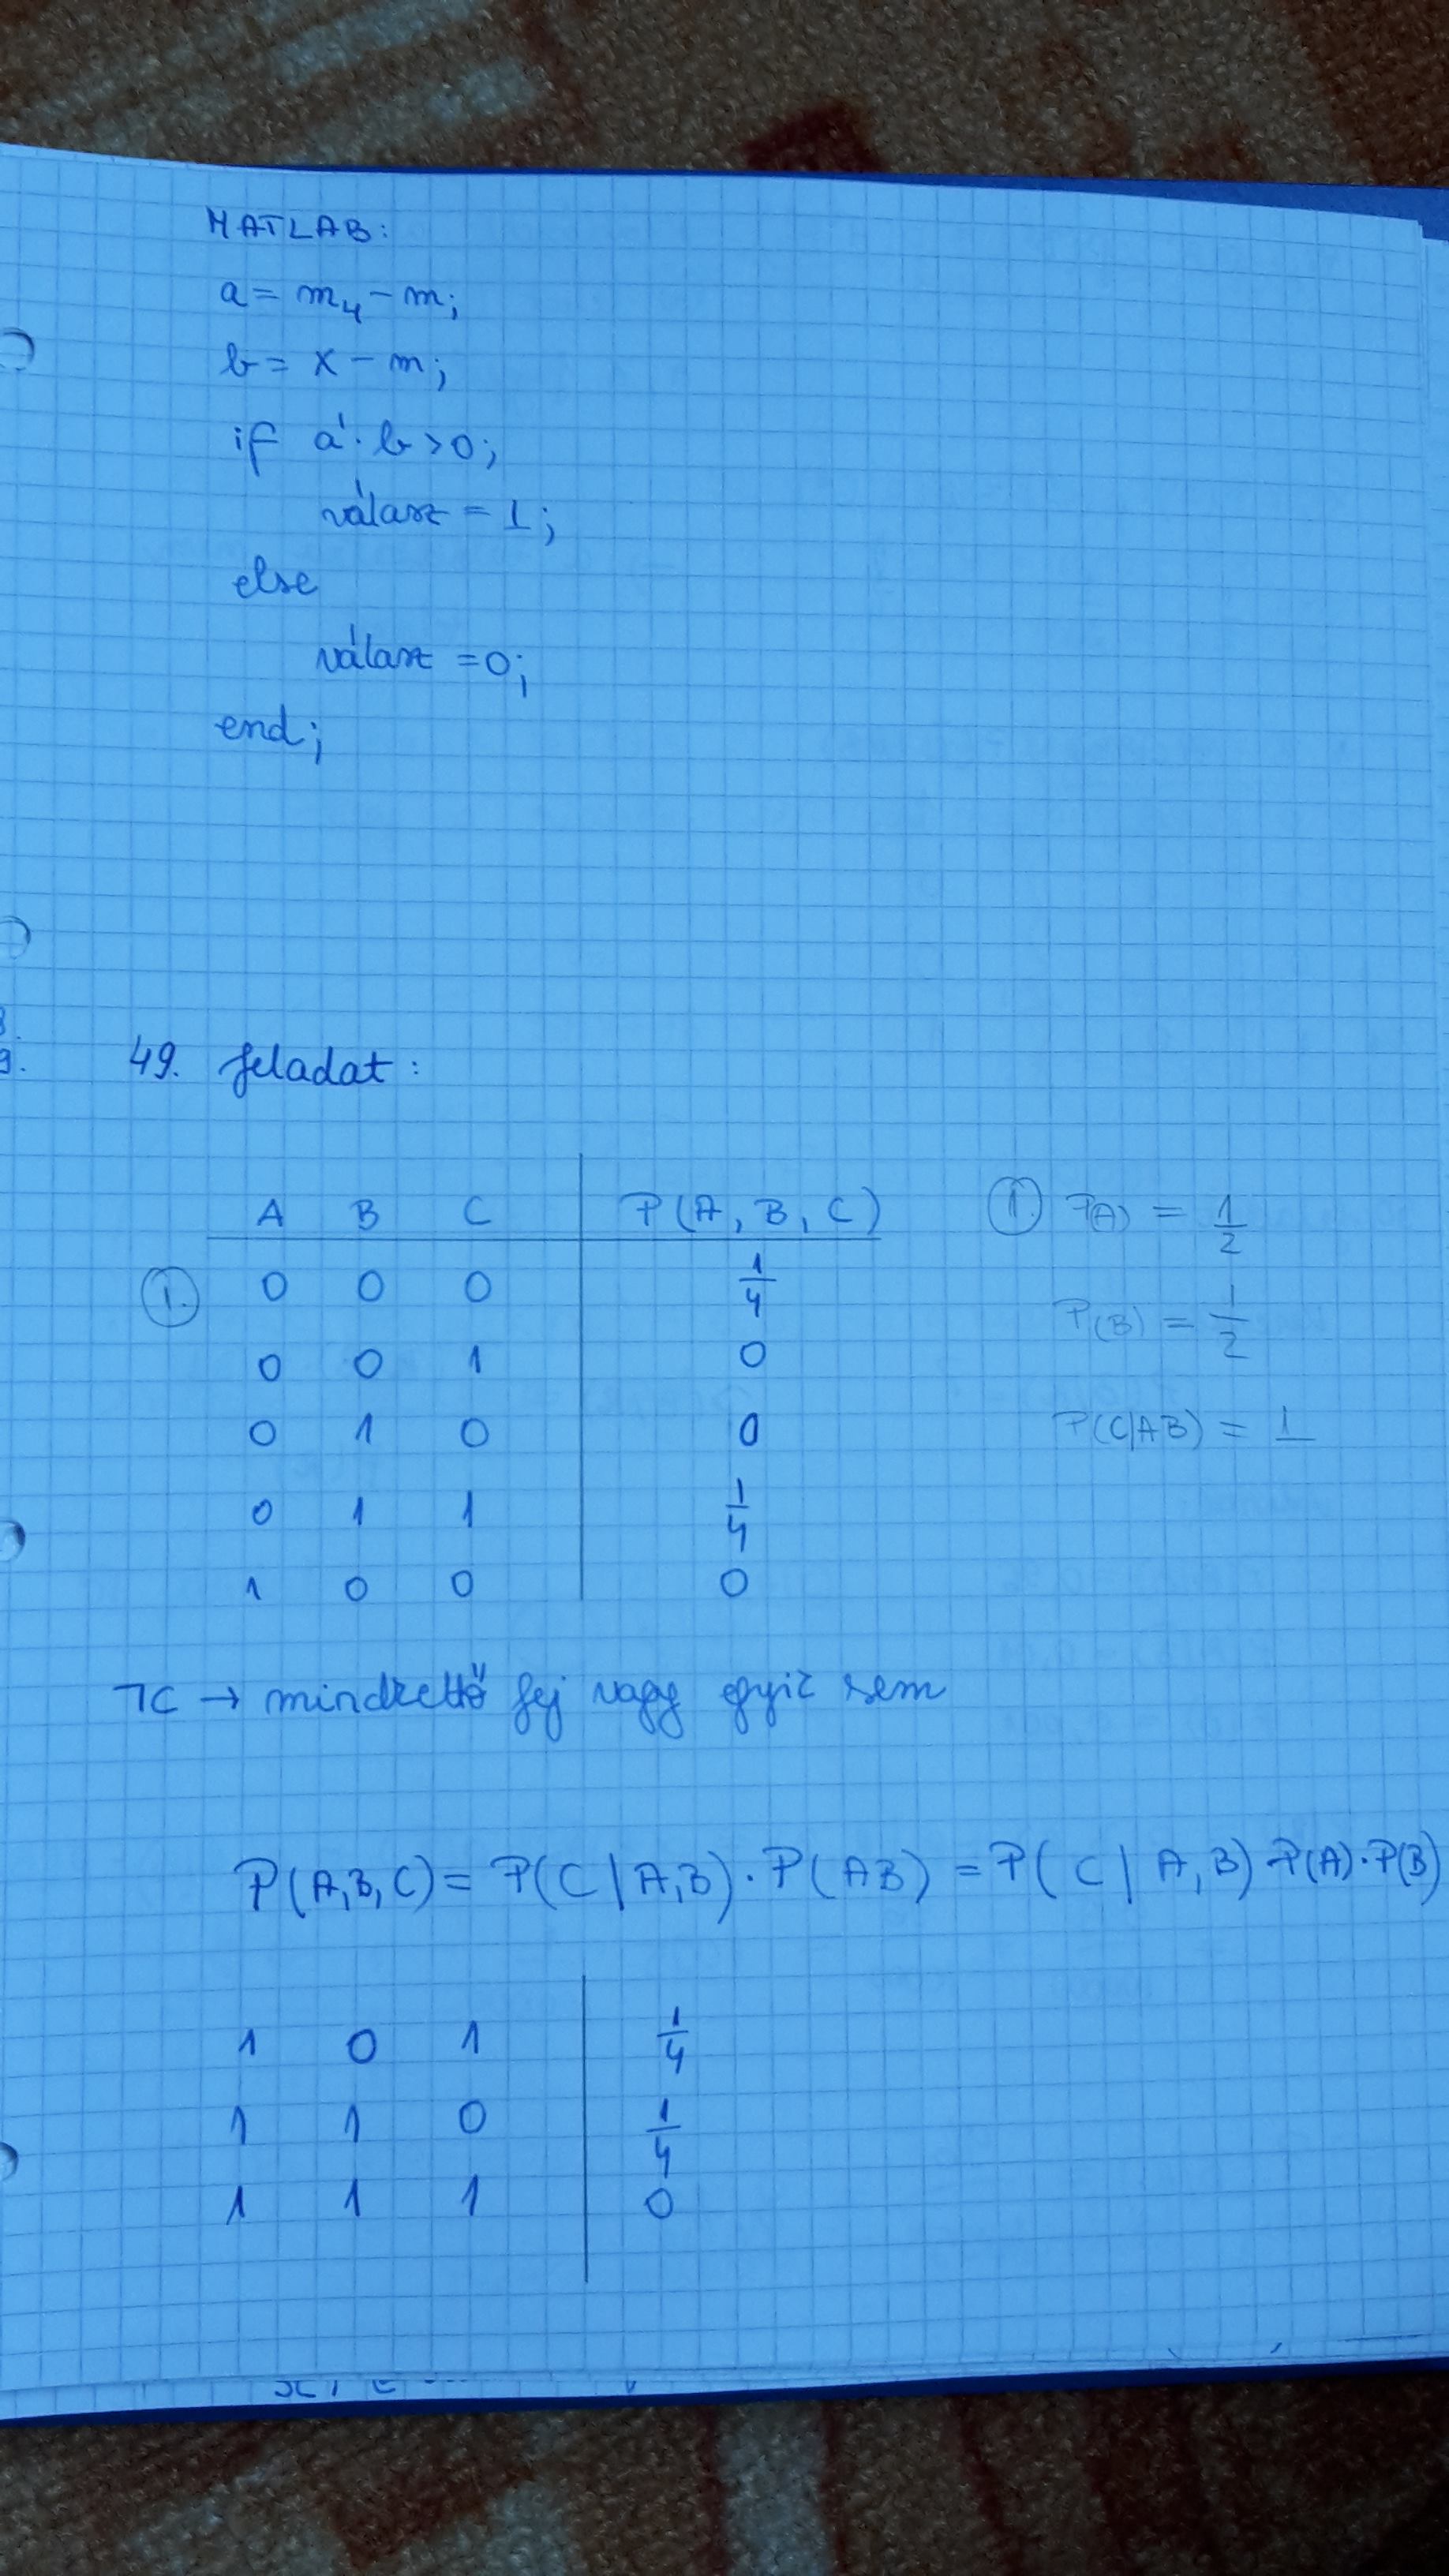 MATLAB:
a = m₄ - m;
b = x - m;
if a'· b > 0;
válasz = 1;
else
válasz = 0;
end;
49. feladat:
A B C | P(A, B, C)
1. 0 0 0 | 1/4
0 0 1 | 0
0 1 0 | 0
0 1 1 | 1/4
1 0 0 | 0
1. P(A) = 1/2
P(B) = 1/2
P(C|AB) = 1
¬C → mindkettő fej vagy egyik sem
P(A,B,C) = P(C|A,B) · P(AB) = P(C|A,B) · P(A) · P(B)
1 0 1 | 1/4
1 1 0 | 1/4
1 1 1 | 0